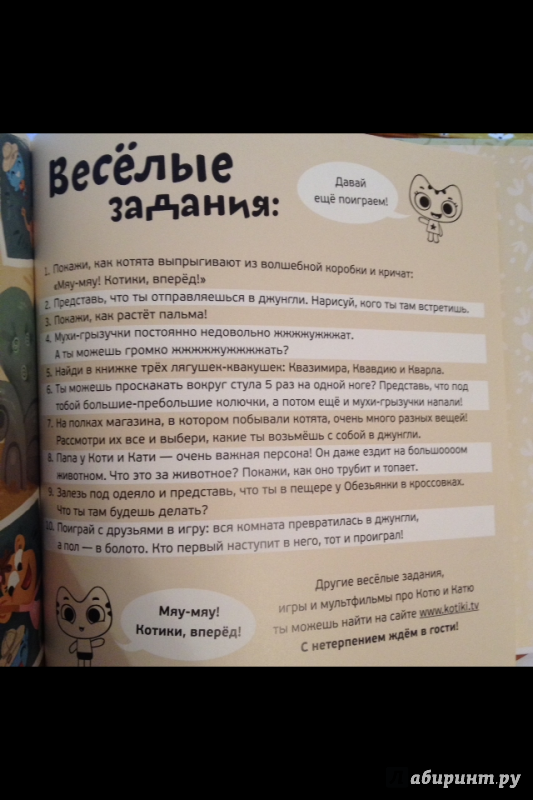 Весёлые
задания:
Давай
ещё поиграем!
1. Покажи, как котята выпрыгивают из волшебной коробки и кричат:
«Мяу-мяу! Котики, вперёд!»
2. Представь, что ты отправляешься в джунгли. Нарисуй, кого ты там встретишь.
3. Покажи, как растёт пальма!
4. Мухи-грызучки постоянно недовольно жжжжужжжат.
А ты можешь громко жжжжжужжжжать?
5. Найди в книжке трёх лягушек-квакушек: Квазимира, Квавдию и Кварла.
6. Ты можешь проскакать вокруг стула 5 раз на одной ноге? Представь, что под
тобой большие-пребольшие колючки, а потом ещё и мухи-грызучки напали!
7. На полках магазина, в котором побывали котята, очень много разных вещей!
Рассмотри их все и выбери, какие ты возьмёшь с собой в джунгли.
8. Папа у Коти и Кати — очень важная персона! Он даже ездит на большоооом
животном. Что это за животное? Покажи, как оно трубит и топает.
9. Залезь под одеяло и представь, что ты в пещере у Обезьянки в кроссовках.
Что ты там будешь делать?
10. Поиграй с друзьями в игру: вся комната превратилась в джунгли,
а пол — в болото. Кто первый наступит в него, тот и проиграл!
Мяу-мяу!
Котики, вперёд!
Другие весёлые задания,
игры и мультфильмы про Котю и Катю
ты можешь найти на сайте www.kotiki.tv
С нетерпением ждём в гости!
Лабиринт.ру